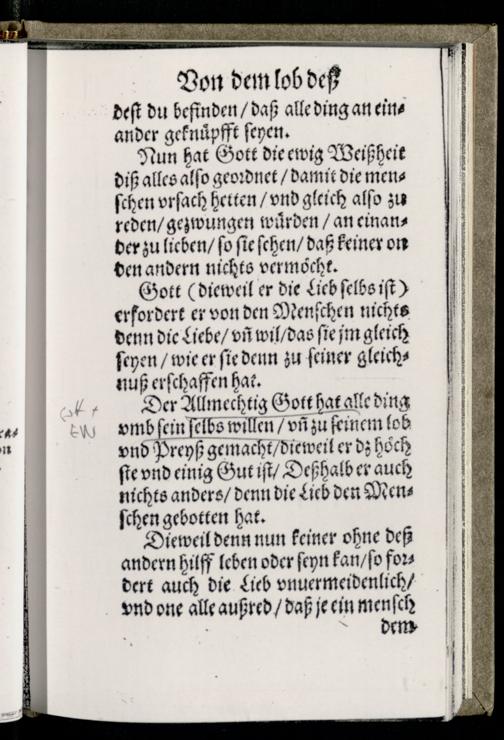 Von dem lob deß
dest du befinden / daß alle ding an ein⸗
ander geknüpfft seyen.
Nun hat Gott die ewig Weißheit
diß alles also geordnet / damit die men⸗
schen vrsach hetten / vnd gleich also zu
reden / gezwungen würden / an einan⸗
der zu lieben / so sie sehen / daß keiner on
den andern nichts vermöcht.
Gott (dieweil er die Lieb selbs ist)
erfordert er von den Menschen nichts
denn die Liebe / vñ wil / das sie jm gleich
seyen / wie er sie denn zu seiner gleich⸗
nuß erschaffen hat.
Der Allmechtig Gott hat alle ding
vmb sein selbs willen / vñ zu seinem lob
vnd Preyß gemacht / dieweil er dz höch
ste vnd einig Gut ist / Deßhalb er auch
nichts anders / denn die Lieb den Men⸗
schen gebotten hat.
Dieweil denn nun keiner ohne deß
andern hilff leben oder seyn kan / so for⸗
dert auch die Lieb vnuermeidenlich /
vnd one alle außred / daß je ein mensch
dem